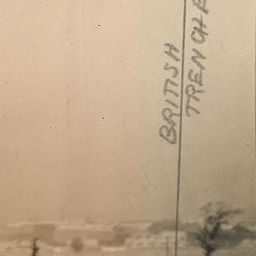 BRITISH
TRENCHE